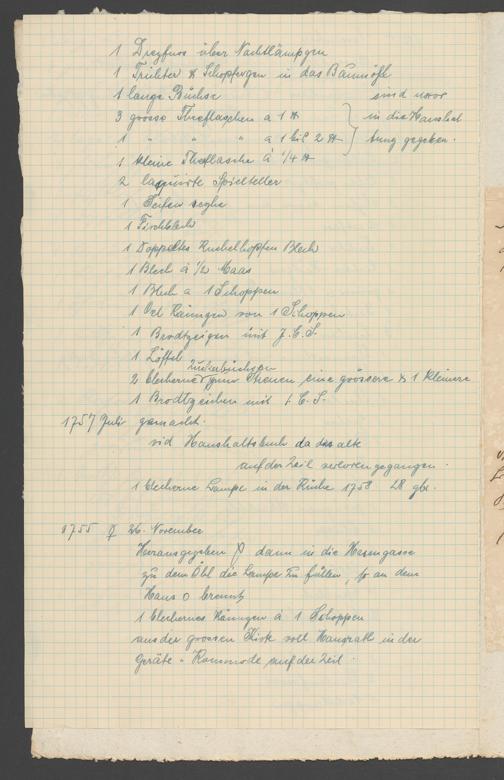 1 Dreyfuss über Nachtlämpgen
1 Trichter & Schopfergen in das Baumöhl
1 lange Büchse sind war
3 grosse Theeflaschen a 1 ℔ in die Haushal
1 " " " a 1 bis 2 ℔ tung gegeben.
1 kleine Theeflasche à 1/4 ℔
2 laquirte Spielteller
1 Seifen
1 Fischblech
1 Doppeltes Kuchelhopfen Blech
1 Blech à 1/2 Maas
1 Blech a 1 Schoppen
1 Oel Känngen von 1 Schoppen
1 Brodtzeigen mit J. C. S.
1 Löffel
Zuckerbüchsgen
2 blecherne eine grössere & 1 kleinere
1 Brodtzeichen mit C. S.
1757 Juli gemacht.
vid Haushaltsbuch da das alte
auf der Zeil verloren gegangen.
1 blecherne Lampe in der Küche 1758 48 gbe.
1755 26. November
Herausgegeben dann in die Hasengasse
zu dem Öhl die Lampe zu füllen, so an dem
Haus brennt
1 blechernes Känngen à 1 Schoppen
aus der grossen Kist voll Hausrath in der
Geräte-Kommode auf der Zeil.